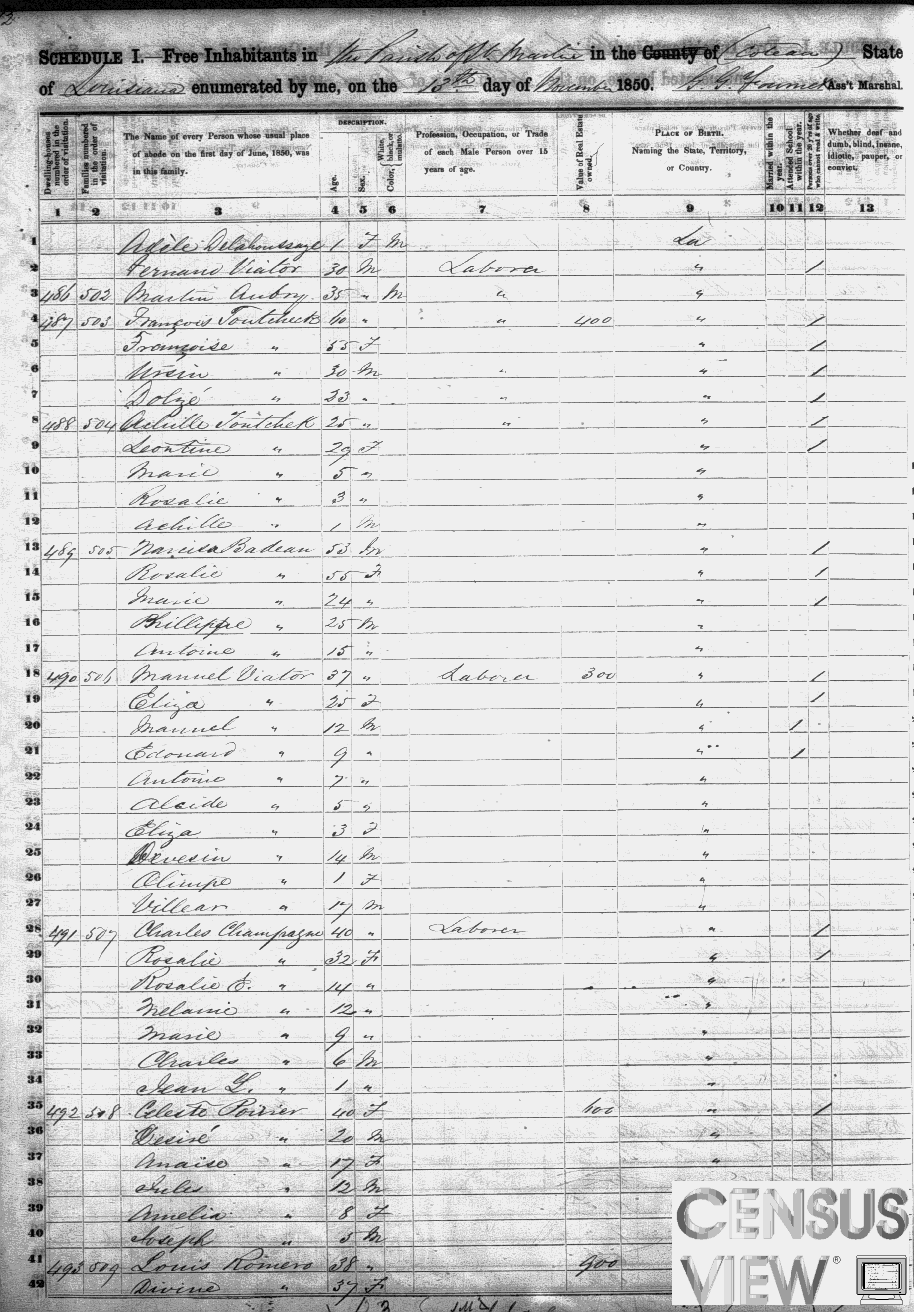 SCHEDULE I.—Free Inhabitants in the Parish of St Martin in the County of (Coteau) State
of Louisiana enumerated by me, on the 13th day of November 1850. Ass't Marshal.
Dwelling-houses numbered in the order of visitation.
Families numbered in the order of visitation.
The Name of every Person whose usual place of abode on the first day of June, 1850, was in this family.
DESCRIPTION.
Age.
Sex.
Color, White, black, or mulatto.
Profession, Occupation, or Trade of each Male Person over 15 years of age.
Value of Real Estate owned.
PLACE OF BIRTH. Naming the State, Territory, or Country.
Married within the year.
Attended School within the year.
Persons over 20 y'rs of age who cannot read & write.
Whether deaf and dumb, blind, insane, idiotic, pauper, or convict.
1 2 3 4 5 6 7 8 9 10 11 12 13
1 Adèle Delahoussaye 1 F M La
2 Fernand Viator 30 M Laborer " /
3 486 502 Martin Aubry 35 " M " "
4 487 503 François Toutcheck 60 " " 400 " /
5 Françoise " 55 F " /
6 Ursin " 30 M " " /
7 Dolzé " 23 " " " /
8 488 504 Achille Toutchek 25 " " " /
9 Leontine " 29 F " /
10 Marie " 5 " "
11 Rosalie " 3 " "
12 Achille " 1 M "
13 489 505 Narcisse Badeau 53 M " /
14 Rosalie " 55 F " /
15 Marie " 24 " " /
16 Phillippe " 25 M "
17 Antoine " 15 " "
18 490 506 Manuel Viator 37 " Laborer 300 " /
19 Eliza " 25 F " /
20 Manuel " 12 M " /
21 Edouard " 9 " " /
22 Antoine " 7 " "
23 Alcide " 5 " "
24 Eliza " 3 F "
25 Devesin " 14 M "
26 Olimpe " 1 F "
27 Villear " 17 M "
28 491 507 Charles Champagne 40 " Laborer " /
29 Rosalie " 32 F " /
30 Rosalie E. " 14 " "
31 Melanie " 12 " "
32 Marie " 9 " "
33 Charles " 6 M "
34 Jean L. " 1 " "
35 492 508 Celeste Poirier 40 F 600 " /
36 Desiré " 20 M "
37 Anaise " 17 F "
38 Jules " 12 M
39 Amelia " 8 F
40 Joseph " 5 M
41 493 509 Louis Romero 38 " 900
42 Divine " 37 F
CENSUS
VIEW®